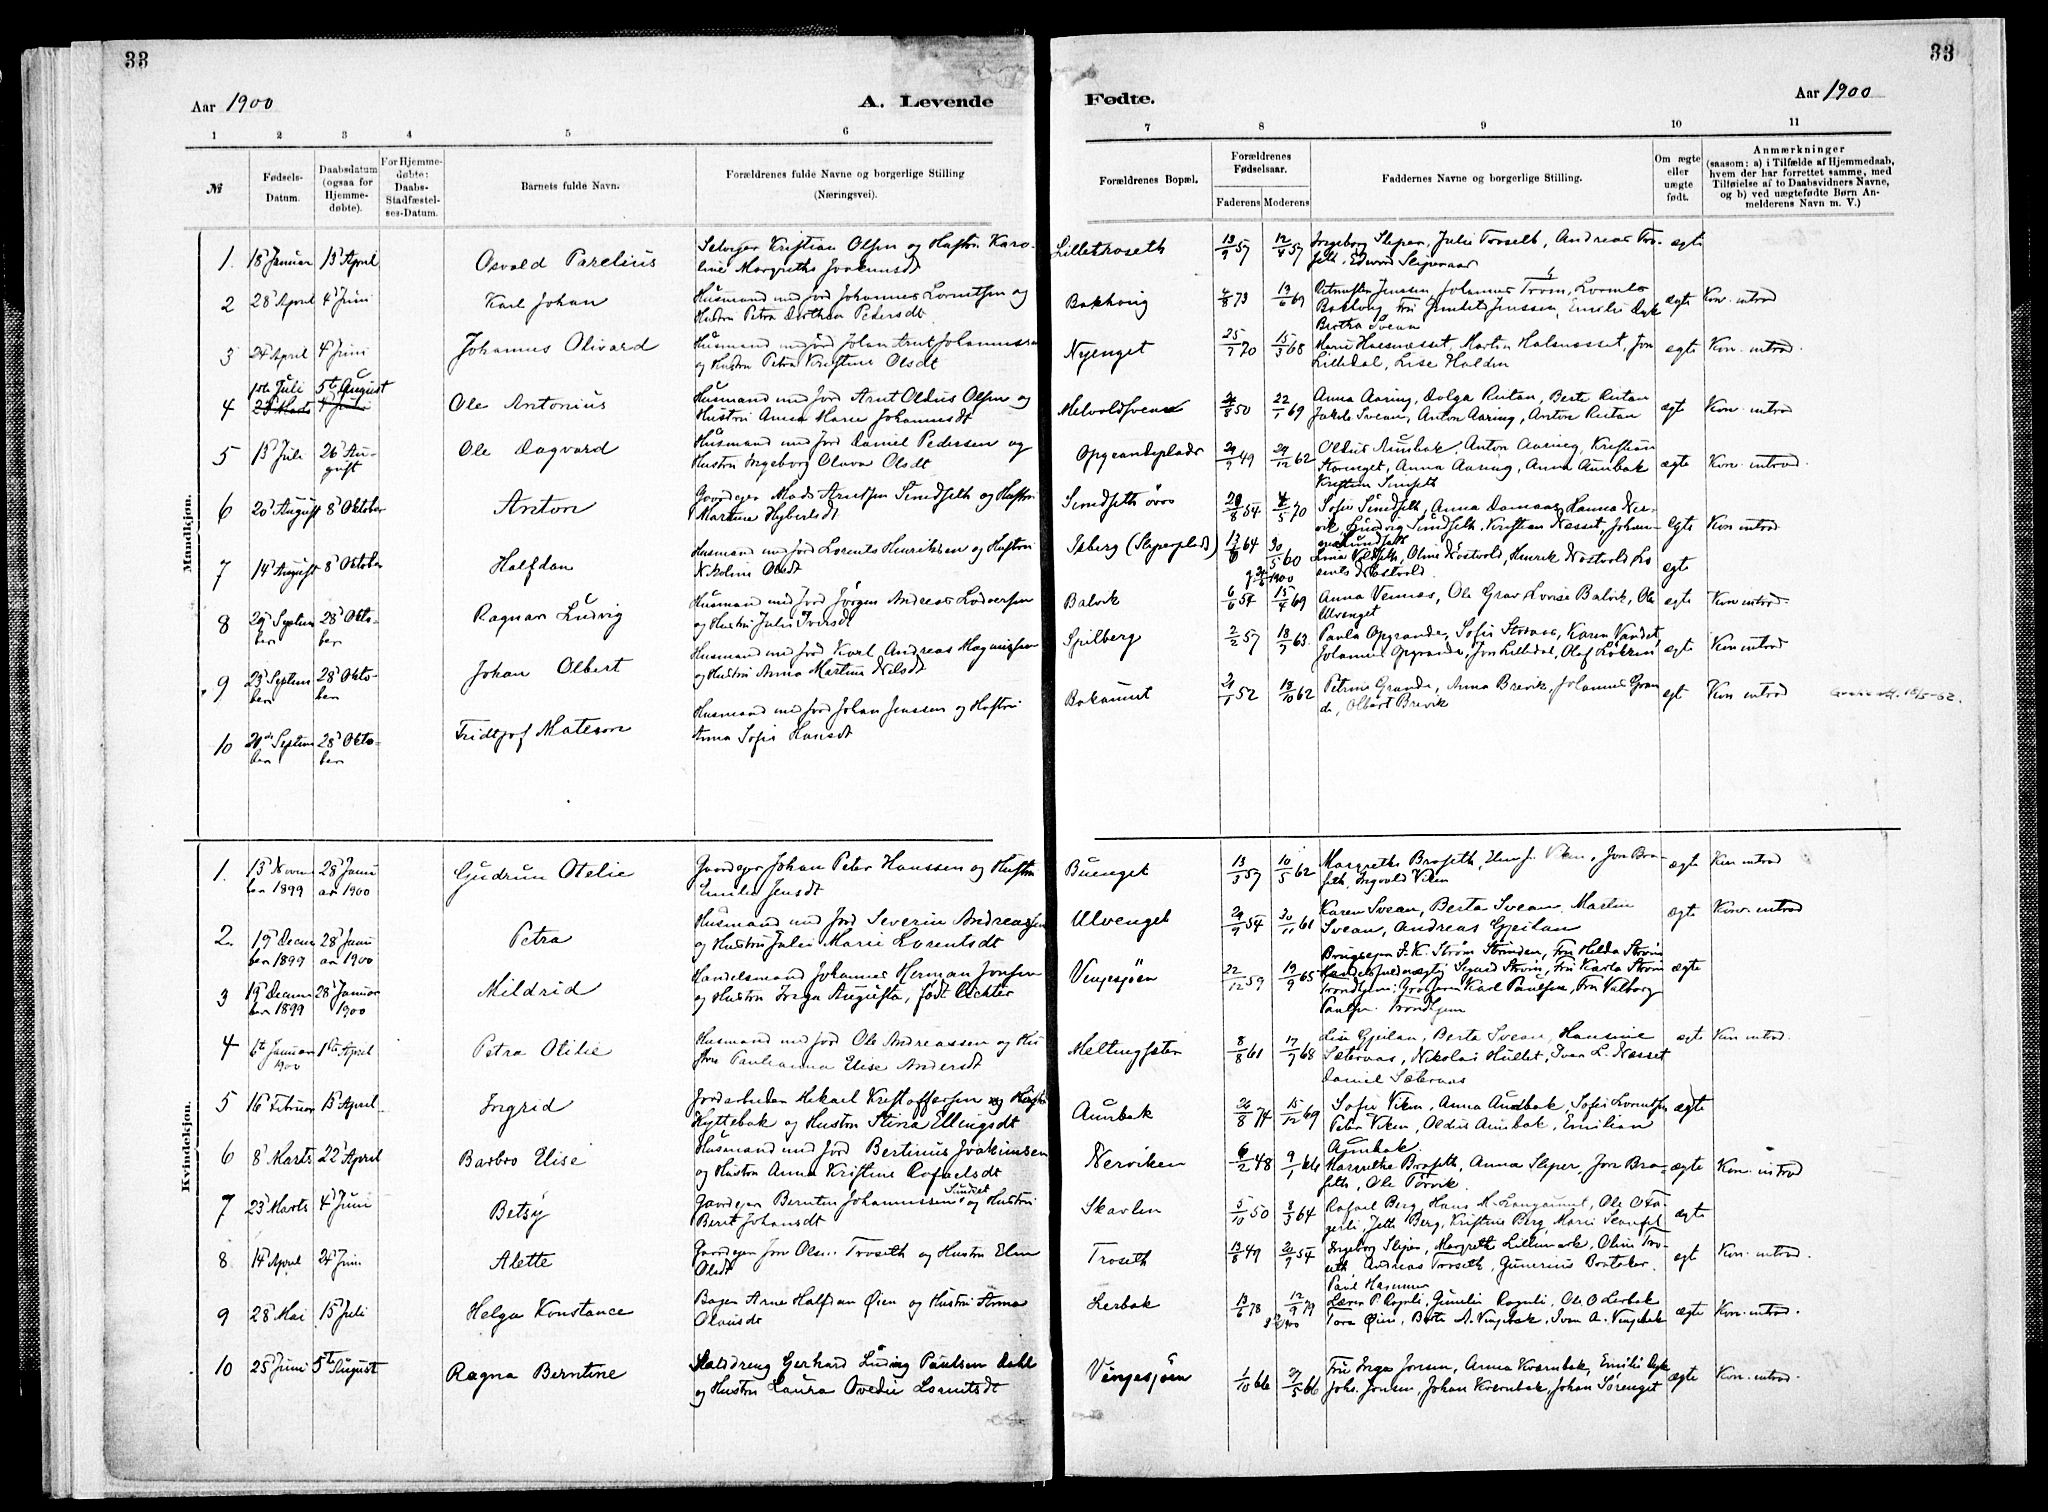 33
33
Aar 1900
A. Levende
Fødte.
Aar 1900
1
2
3
4
5
6
7
8
9
10
11
№
Fødsels-
Datum.
Daabsdatum
(ogsaa for
Hjemme-
døbte).
For Hjemme-
døbte:
Daabs-
Stadfæstel-
ses-Datum.
Barnets fulde Navn.
Forældrenes fulde Navne og borgerlige Stilling
(Næringsvei).
Forældrenes Bopæl.
Forældrenes
Fødselsaar.
Faderens
Moderens
Faddernes Navne og borgerlige Stilling.
Om ægte
eller
uægte
født.
Anmærkninger
(saasom: a) i Tilfælde af Hjemmedaab,
hvem der har forrettet samme, med
Tilføielse af to Daabsvidners Navne,
og b) ved uægtefødte Børn An-
melderens Navn m. V.)
Mandkjøn.
1. 18 Januar 15 April Osvald Parelius
Selveier Kristian Olsen og Hustru Karo-
line Margrethe Joakimsdt
Lilletroseth 13/9 57 12/4 57 Ingeborg Sliper, Julie Troseth, Andreas Tro-
seth, Edvard Sliperaas ægte
2 28 April 4 Juni Karl Johan
Husmand med Jord Johannes Lorntsen og
Hustru Petra Dorthea Pedersdt
Bakhaug 4/8 73 19/6 69 Jenssen, Johannes Strøm, Lornts
Bakhaug, Fru Jenssen, Emilie Dyk
Bertha Svean ægte Kon. introd
3 24 April 4 Juni Johannes Olivard
Husmand med Jord Johan Arnt Johannessen
og Hustru Petra Kristine Olsdt
Nyenget 25/7 70 15/3 68 Marie Halsnæsset, Martin Halsnæsset, Jon
Lilledal, Lise Halden ægte Kon. introd.
4 1ste Juli 5te August Ole Antonius
29 Marts 4 Juni
Husmand med Jord Arnt Oldus Olsen og
Hustru Anna Marie Johannesdt
Melvoldsvean 50 22/1 69 Anna Aaring, Dolga Ristan, Berte Ristan
Jakob Svean, Anton Aaring, Anton Ristan ægte Kon. introd
5 13 Juli 26 Au-
gust Ole Dagvard
Husmand med Jord Daniel Pedersen og
Hustru Ingeborg Olava Olsdt
Opgrandeplads 29/9 49 29/12 62 Oldus Aunbak, Anton Aaring, Kristian
Storenget, Anna Aaring, Anna Aunbak
Kristian ægte Kon. introd.
6 20 August 8 Oktober Anton
Gaardeier Mads Arntsen Sundseth og Hustru
Martine Hybertsdt
Sundseth øvre 20/8 54 4/5 70 Sofie Sundseth, Anna Damaas, Hanna Ner-
vik, Ludvig Sundseth, Kristian Næsset, Johan-
nes Sundseth ægte Kon introd
7 14 August 8 Oktober Halfdan
Husmand med Jord Lorents Henriksen og Hustru
Nikoline Olsdt
Isberg (Sliperplads) 13/6 64 30/5 60 Olive Nøstvold, Henrik Nøstvold, Lo-
rents Nøstvold. ægte
8 29 Septem
ber 28 Okto-
ber Ragnar Ludvig
Husmand med Jord Jørgen Andreas Lodversen
og Hustru Julie Iversdt
Balvik 6/6 54 15/4 69 Anna Vennes, Ole Grav, Lovise Balvik, Ole
Ulvenget ægte Kon introd.
9 23 Septem
ber 28 Okto-
ber Johan Olbert
Husmand med Jord Karl Andreas Magnussen
og Hustru Anna Martine Nilsdt
Spilberg 2/2 57 18/7 63. Paula Opgrande, Sofie Storaas, Karen Vandet,
Johannes Opgrande, Jon Lilledal, Olaf Løkren ægte Kon introd
10 20de Septem
ber 28 Okto-
ber Fridtjof Mateson
Husmand med Jord Johan Jenssen og Hustru
Anna Sofie Hansdt
Bokaunet 29/1 52 18/10 62 Petrine Grande, Anna Brevik, Johannes Gran-
de, Olbert Brevik ægt Kon introd
Kvindekjøn.
1. 13 Novem
ber 1899 28 Janu
ar 1900 Gudrun Otelie
Gaardeier Johan Peter Hanssen og Hustru
Emilie Jensdt
Buenget 13/3 57 10/5 62 Margrethe Braseth, Elen J. Viken, Jon Bra-
seth, Ingvald Viken ægte Kon introd
2. 19 Decem
ber 1899 28 Janu
ar 1900 Petra
Husmand med Jord Severin Andreassen
og Hustru Julie Marie Lorentsdt
Ulvenget 29/9 54 30/11 61 Karen Svean, Berta Svean, Martin
Svean, Andreas Gjeilan ægte Kon. introd
3 19 Decem
ber 1899 28 Januar
1900 Mildrid
Handelsmand Johannes Herman Jensen
og Hustru Inga Augusta, født Richter
Vingesjøen 22/12 59 19/9 65 Brugseier F. K. Strøm Strinden, Fru Helda Strøm
Sigurd Strøm, Fru Karla Strøm
Trondhjem: Karl Paulsen, Fru Valborg
Paulsen Trondhjem ægte
4 6te Januar
1900 1ste April Petra Otilie
Husmand med Jord Ole Andreassen og Hu-
stru Paulianna Elise Andersdt
Meltingsæter 8/8 61 17/7 68 Lise Gjeilan, Berta Svean, Hansine
Sæteraas, Nikolai Hullet, Ivar L. Næsset
Daniel Sæteraas ægte Kon introd.
5 16 Februar 15 April Ingrid
Jordarbeider Mikael Kristoffersen
Hyttebak og Hustru Stina Ellingsdt
Aunbak 26/8 74 15/12 69 Sofie Viken, Anna Aunbak, Sofie Lorntsen
Peter Viken, Oldus Aunbak, Emilian
Aunbak ægte
6 8 Marts 22 April Barbro Elise
Husmand med Jord Bertinus Joakimsen
og Hustru Anna Kristine Rafaelsdt
Nerviken 6/2 48 9/1 66 Margrethe Braseth, Anna Sliper, Jon Bra-
seth, Ole Førvik. ægte Kon. introd
7 23 Marts 4 Juni Betsy
Gaardeier Bernten Johannessen Sundet og Hustru
Berit Johansdt
Skavlen 5/10 50 8/3 64 Rafael Berg, Hans M. Langaunet, Ole O Fa-
gerli, Jette Berg, Kristine Berg, Marie ægte
8 14 April 24 Juni Alette
Gaardeier Jon Olsen Troseth og Hustru Elen
Olsdt
Troseth 13/8 49 21/9 54 Ingeborg Sliper, Margreth Lillemark, Oline Tro-
seth Andreas Troseth, Gunerius Brataker.
Paul Hammer ægt Kon. introd.
9 28 Mai 15 Juli Helga Konstance
Bager Arne Halfdan Øien og Hustru Anna
Olausdt
Lerbak 13/6 78 12/9 79 Laren P. Rognli, Gunelie Rognli, Ole O Lerbak
Tora Øien, Berte A. Vingebak, Iver A. Vingebak ægte Kon. introd.
10 25 Juni 5te August Ragna Berntine
Stalddreng Gerhard Ludvig Paulsen Dahl
og Hustru Laura Ovedie Lorentsdt
Vingesjøen 1/10 66 29/5 66 Fru Inga Jensen, Anna Kvernbak, Emilie Dyk
Johs. Jensen, Johan Kvernbak, Johan Sørenget ægte Kon. introd.